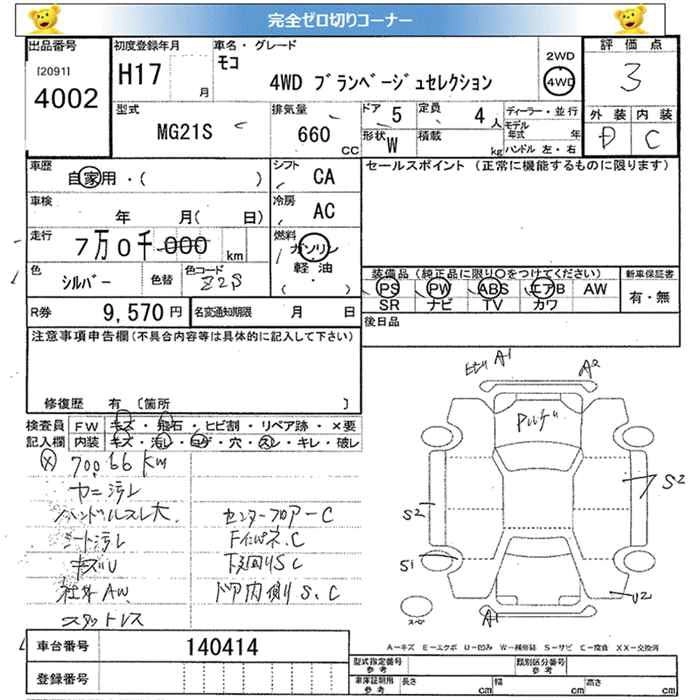 完全ゼロ切りコーナー
出品番号
[2091]
4002
初度登録年月
H17
月
車名・グレード
モコ
4WD ブランベージュセレクション
2WD
4WD
評価点
3
外装 内装
D C
型式
MG21S
排気量
660
CC
ドア
5
定員
4
人
形状
W
積載
kg
ディーラー・並行
モデル年式
年
ハンドル 左・右
車歴
自家用・( )
シフト
CA
セールスポイント (正常に機能するものに限ります)
車検
年 月( 日)
冷房
AC
走行
7万0千000
km
燃料
ガソリン
軽油
( ・ )
色
シルバー
色替
色コード
Z2S
装備品(純正品に限り○をつけてください)
PS PW ABS エアB AW
SR ナビ TV カワ
新車保証書
有・無
R券
9,570円
名変通知期限
月 日
後日品
注意事項申告欄(不具合内容等は具体的に記入して下さい)
修復歴 有 〔箇所 〕
検査員
記入欄
FW キズ・飛石・ヒビ割・リペア跡・×要
内装 キズ・汚レ・コゲ・穴・スレ・キレ・破レ
70066Km
ハンドルスレ大
センターフロアーC
シート汚レ
キズU
下廻りSC
社外AW
ドア内側りS、C
スタッドレス
A1
A2
S2
S2
S1
U2
A1
スペア
A-キズ E-エクボ U-凹み W-補修跡 S-サビ C-腐食 XX-交換済
車台番号
140414
登録番号
型式指定番号
参考
類別区分番号
参考
車庫証明用
参考
長さ
cm
幅
cm
高さ
cm